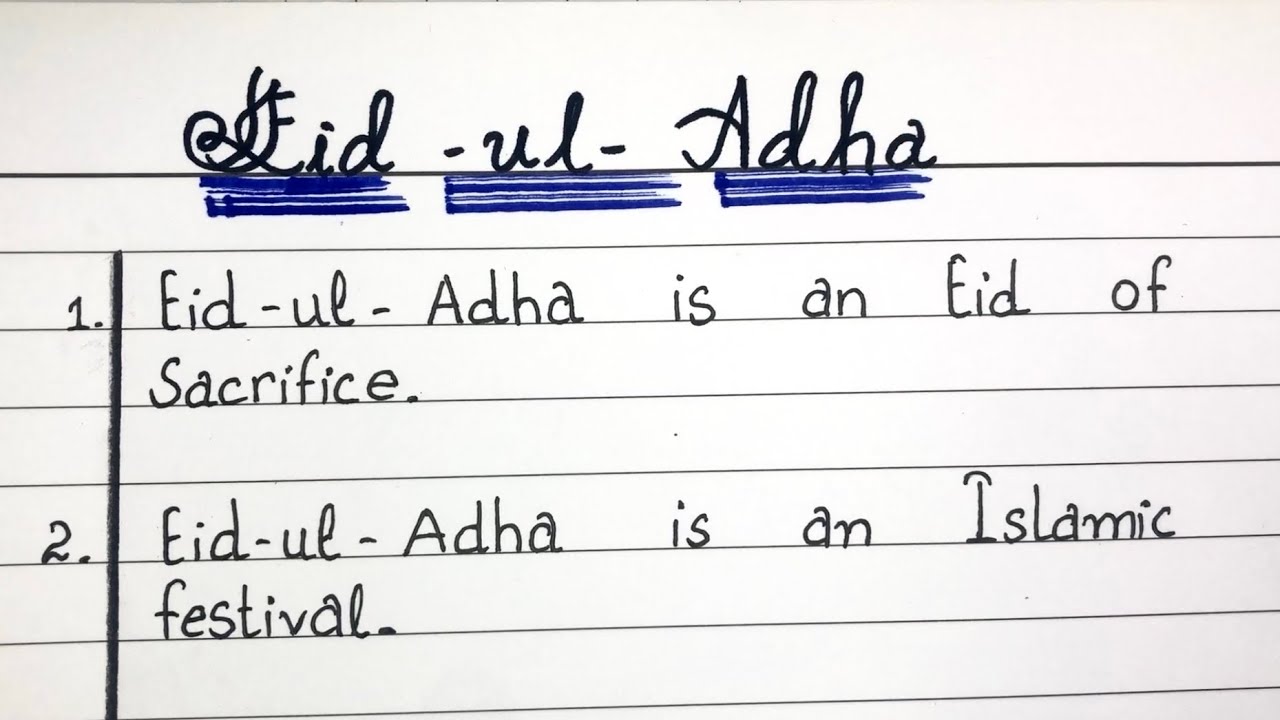 Eid -ul- Adha
1. Eid-ul-Adha is an Eid of
Sacrifice.
2. Eid-ul-Adha is an Islamic
festival.